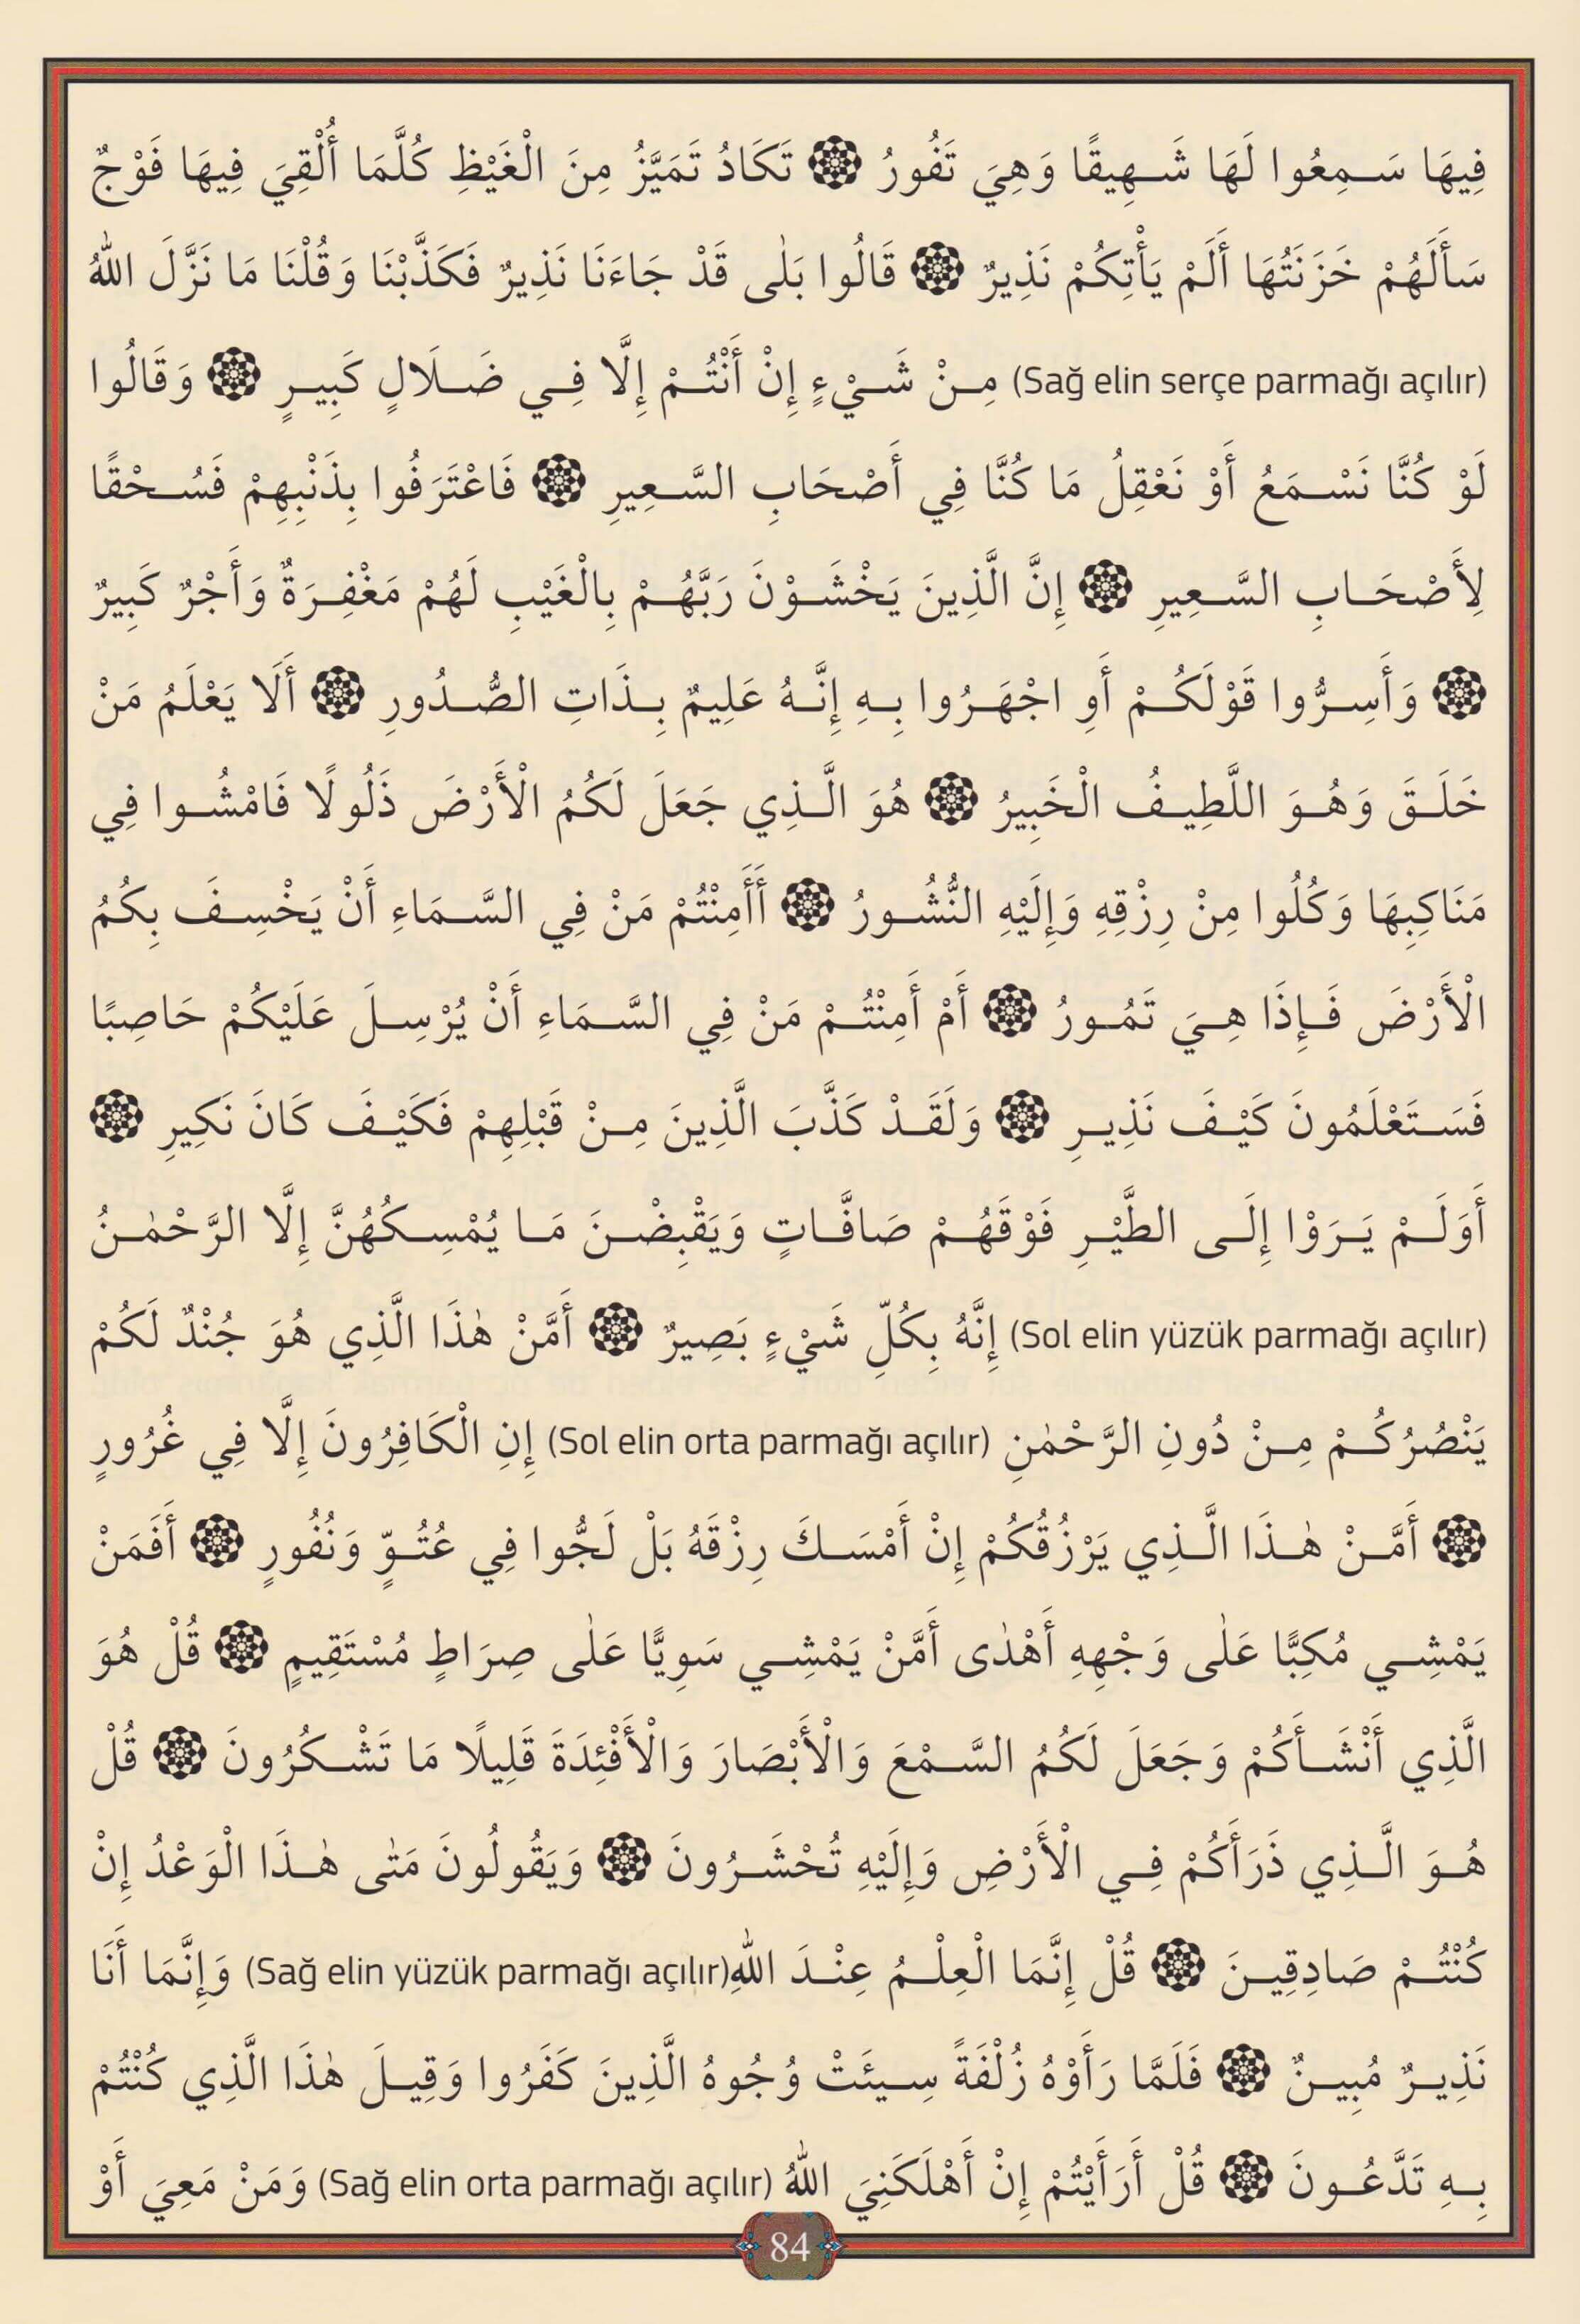 فِيهَا سَمِعُوا لَهَا شَهِيقًا وَهِيَ تَفُورُ ۞ تَكَادُ تَمَيَّزُ مِنَ الْغَيْظِ كُلَّمَا أُلْقِيَ فِيهَا فَوْجٌ
سَأَلَهُمْ خَزَنَتُهَا أَلَمْ يَأْتِكُمْ نَذِيرٌ ۞ قَالُوا بَلٰى قَدْ جَاءَنَا نَذِيرٌ فَكَذَّبْنَا وَقُلْنَا مَا نَزَّلَ اللهُ
(Sağ elin serçe parmağı açılır) مِنْ شَيْءٍ إِنْ أَنْتُمْ إِلَّا فِي ضَلَالٍ كَبِيرٍ ۞ وَقَالُوا
لَوْ كُنَّا نَسْمَعُ أَوْ نَعْقِلُ مَا كُنَّا فِي أَصْحَابِ السَّعِيرِ ۞ فَاعْتَرَفُوا بِذَنْبِهِمْ فَسُحْقًا
لِأَصْحَابِ السَّعِيرِ ۞ إِنَّ الَّذِينَ يَخْشَوْنَ رَبَّهُمْ بِالْغَيْبِ لَهُمْ مَغْفِرَةٌ وَأَجْرٌ كَبِيرٌ
۞ وَأَسِرُّوا قَوْلَكُمْ أَوِ اجْهَرُوا بِهِ إِنَّهُ عَلِيمٌ بِذَاتِ الصُّدُورِ ۞ أَلَا يَعْلَمُ مَنْ
خَلَقَ وَهُوَ اللَّطِيفُ الْخَبِيرُ ۞ هُوَ الَّذِي جَعَلَ لَكُمُ الْأَرْضَ ذَلُولًا فَامْشُوا فِي
مَنَاكِبِهَا وَكُلُوا مِنْ رِزْقِهِ وَإِلَيْهِ النُّشُورُ ۞ أَأَمِنْتُمْ مَنْ فِي السَّمَاءِ أَنْ يَخْسِفَ بِكُمُ
الْأَرْضَ فَإِذَا هِيَ تَمُورُ ۞ أَمْ أَمِنْتُمْ مَنْ فِي السَّمَاءِ أَنْ يُرْسِلَ عَلَيْكُمْ حَاصِبًا
فَسَتَعْلَمُونَ كَيْفَ نَذِيرِ ۞ وَلَقَدْ كَذَّبَ الَّذِينَ مِنْ قَبْلِهِمْ فَكَيْفَ كَانَ نَكِيرِ ۞
أَوَلَمْ يَرَوْا إِلَى الطَّيْرِ فَوْقَهُمْ صَافَّاتٍ وَيَقْبِضْنَ مَا يُمْسِكُهُنَّ إِلَّا الرَّحْمٰنُ
(Sol elin yüzük parmağı açılır) إِنَّهُ بِكُلِّ شَيْءٍ بَصِيرٌ ۞ أَمَّنْ هٰذَا الَّذِي هُوَ جُنْدٌ لَكُمْ
يَنْصُرُكُمْ مِنْ دُونِ الرَّحْمٰنِ (Sol elin orta parmağı açılır) إِنِ الْكَافِرُونَ إِلَّا فِي غُرُورٍ
۞ أَمَّنْ هٰذَا الَّذِي يَرْزُقُكُمْ إِنْ أَمْسَكَ رِزْقَهُ بَلْ لَجُّوا فِي عُتُوٍّ وَنُفُورٍ ۞ أَفَمَنْ
يَمْشِي مُكِبًّا عَلٰى وَجْهِهِ أَهْدٰى أَمَّنْ يَمْشِي سَوِيًّا عَلٰى صِرَاطٍ مُسْتَقِيمٍ ۞ قُلْ هُوَ
الَّذِي أَنْشَأَكُمْ وَجَعَلَ لَكُمُ السَّمْعَ وَالْأَبْصَارَ وَالْأَفْئِدَةَ قَلِيلًا مَا تَشْكُرُونَ ۞ قُلْ
هُوَ الَّذِي ذَرَأَكُمْ فِي الْأَرْضِ وَإِلَيْهِ تُحْشَرُونَ ۞ وَيَقُولُونَ مَتٰى هٰذَا الْوَعْدُ إِنْ
كُنْتُمْ صَادِقِينَ ۞ قُلْ إِنَّمَا الْعِلْمُ عِنْدَ اللهِ(Sağ elin yüzük parmağı açılır) وَإِنَّمَا أَنَا
نَذِيرٌ مُبِينٌ ۞ فَلَمَّا رَأَوْهُ زُلْفَةً سِيئَتْ وُجُوهُ الَّذِينَ كَفَرُوا وَقِيلَ هٰذَا الَّذِي كُنْتُمْ
بِهِ تَدَّعُونَ ۞ قُلْ أَرَأَيْتُمْ إِنْ أَهْلَكَنِيَ اللهُ (Sağ elin orta parmağı açılır) وَمَنْ مَعِيَ أَوْ
84